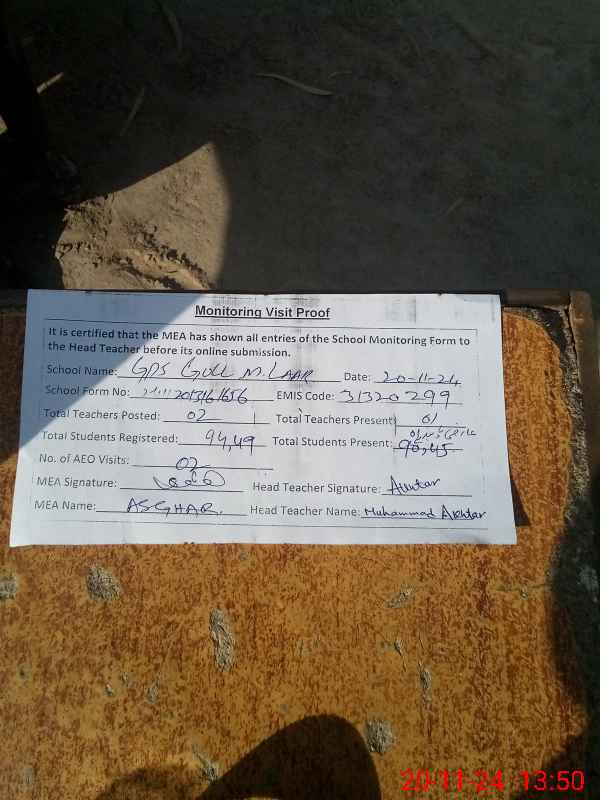 Monitoring Visit Proof
It is certified that the MEA has shown all entries of the School Monitoring Form to
the Head Teacher before its online submission.
School Name: GPS GULL M. LAAR Date: 20-11-24
School Form No: EMIS Code: 31320299
Total Teachers Posted: 02 Total Teachers Present 01
Total Students Registered: 94,49 Total Students Present:
No. of AEO Visits: 02
MEA Signature: Head Teacher Signature: Akhtar
MEA Name: ASGHAR. Head Teacher Name: Muhammad Akhtar
20-11-24 13:50